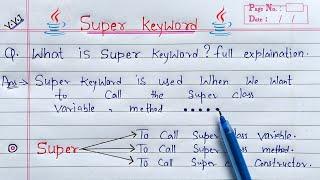 V.V.I
Super Keyword
Page No. :
Date : / /
Q. What is Super Keyword? full explaination.
Ans→ Super Keyword is used When We Want
to Call the Super class
Variable, method ......
Super
To Call Super class Variable.
To Call Super class method.
To Call Super Constructor.